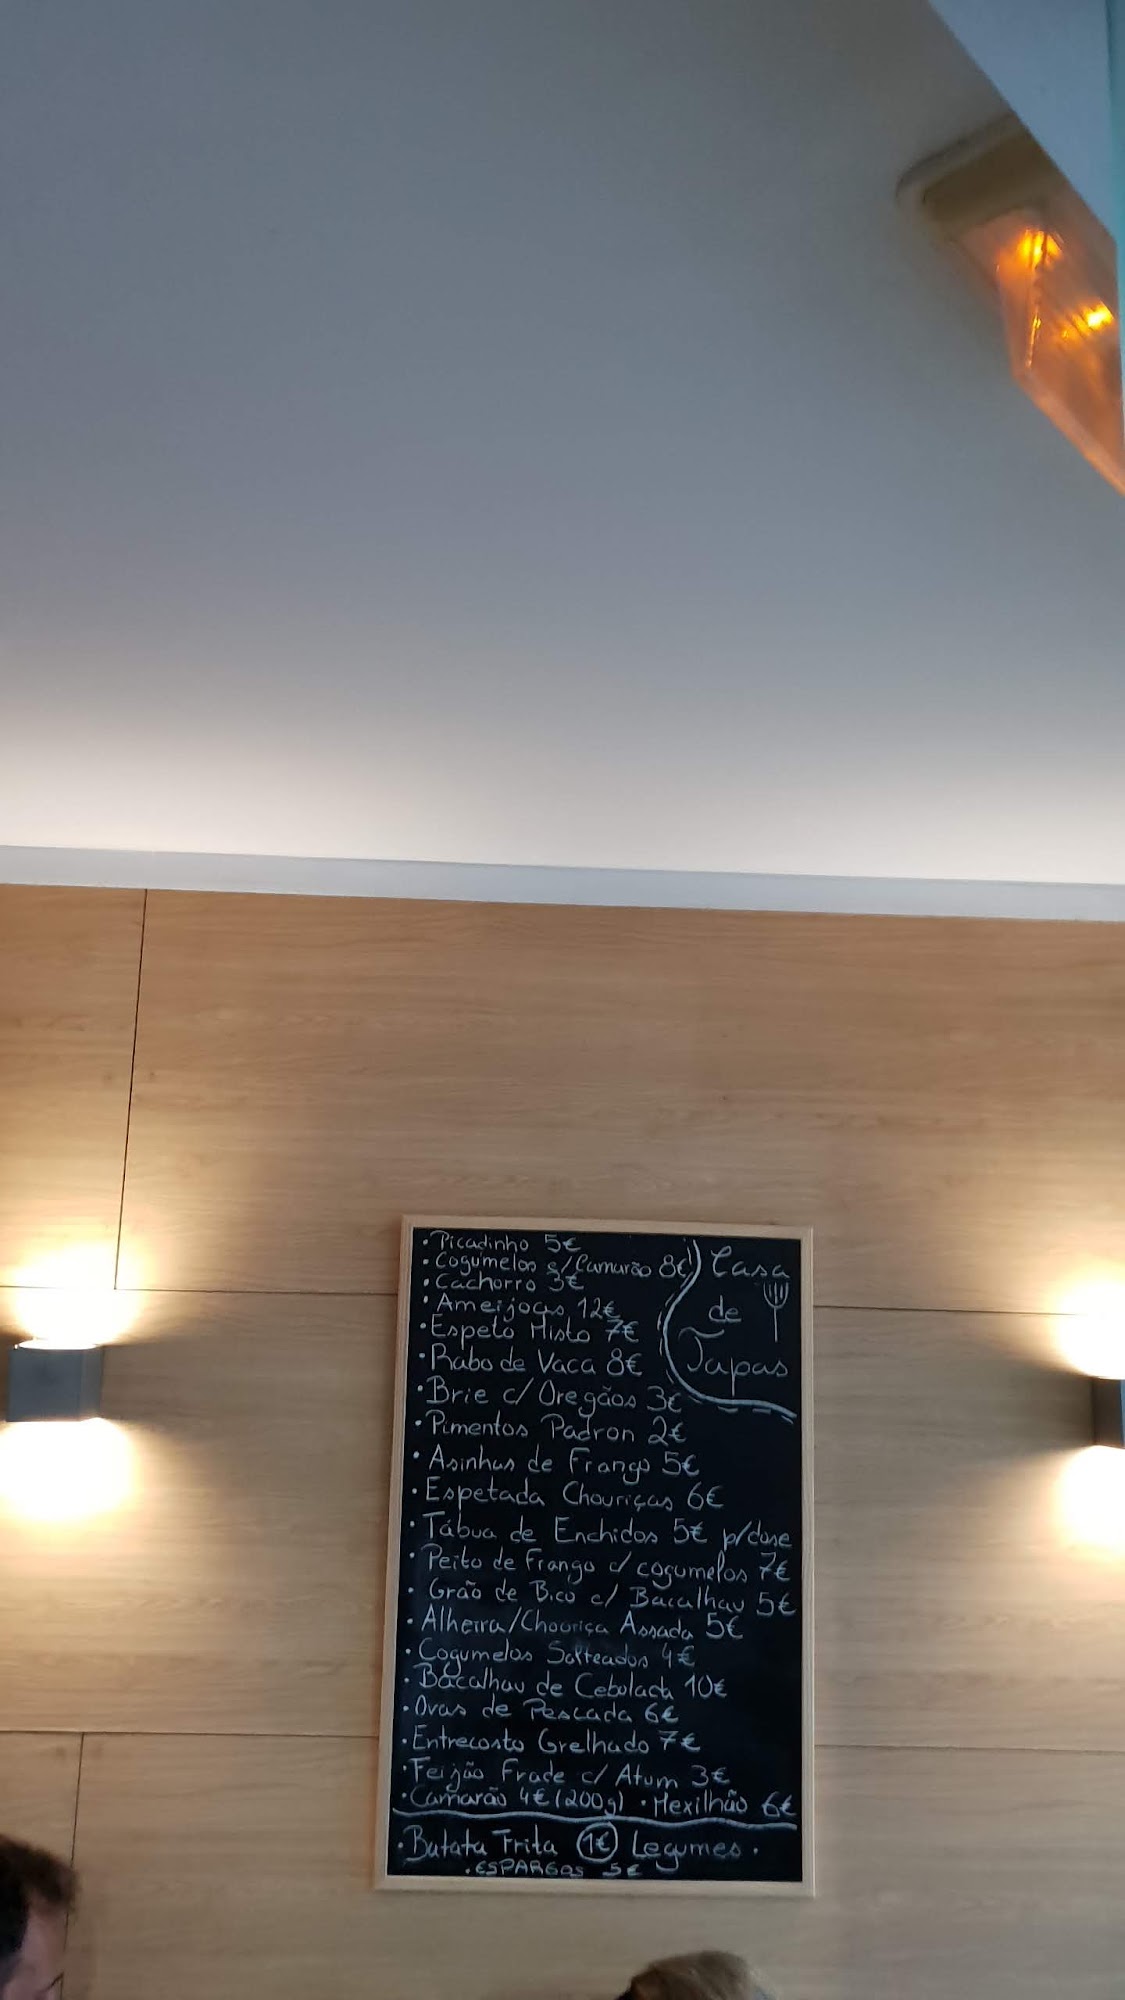 • Picadinho 5€
• Cogumelos c/Camarão 8€
• Cachorro 3€
• Ameijoas 12€
• Espeto Misto 7€
• Rabo de Vaca 8€
• Brie c/ Oregãos 3€
• Pimentos Padron 2€
• Asinhas de Frango 5€
• Espetada Chouriças 6€
• Tábua de Enchidos 5€ p/dose
• Peito de Frango c/ cogumelos 7€
• Grão de Bico c/ Bacalhau 5€
• Alheira/Chouriça Assada 5€
• Cogumelos Salteados 4€
• Bacalhau de Cebolada 10€
• Ovas de Pescada 6€
• Entrecosto Grelhado 7€
• Feijão Frade c/ Atum 3€
• Camarão 4€ (200g) • Mexilhão 6€
• Batata Frita 1€ Legumes •
• ESPARGOS 5€
Casa
de
Tapas